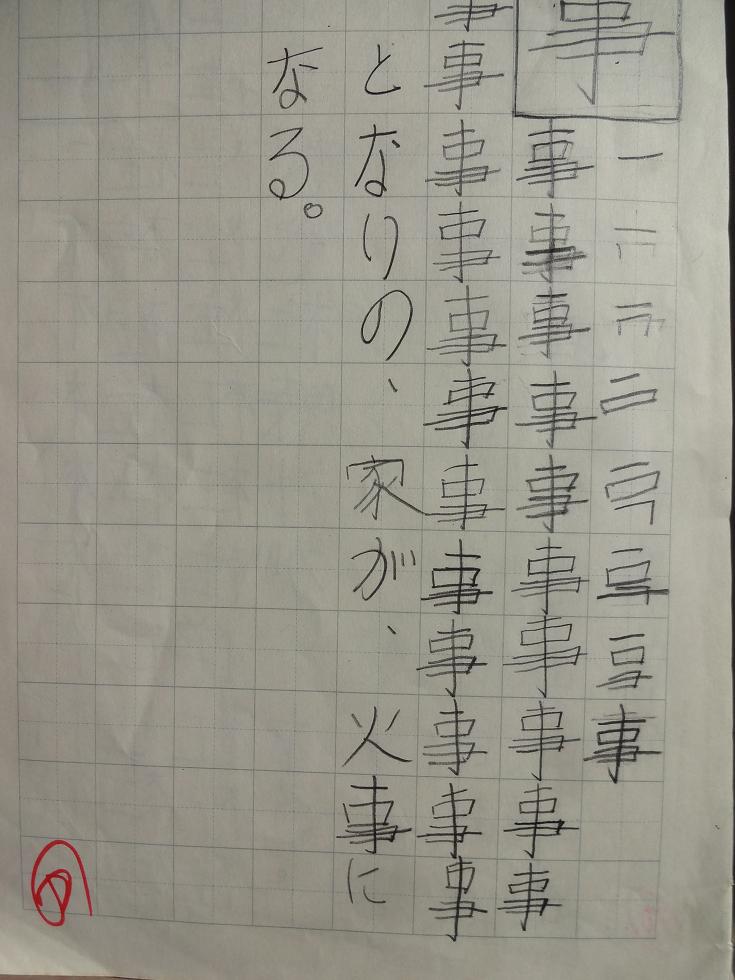 事
一事
事事事事事事事事事事
事事事事事事事事事事事事
となりの、家が、火事に
なる。